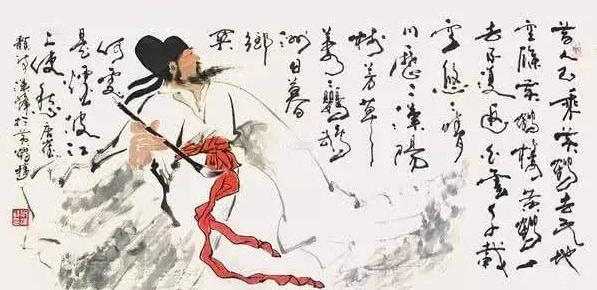 昔人已乘黃鶴去此地
空餘黃鶴樓黃鶴一
去不復返白雲千載
空悠悠晴
川歷歷漢陽
樹芳草
萋萋鸚鵡
洲日暮
鄉
關
何處
是煙波江
上使人愁唐崔
顥詩 於黃鶴樓